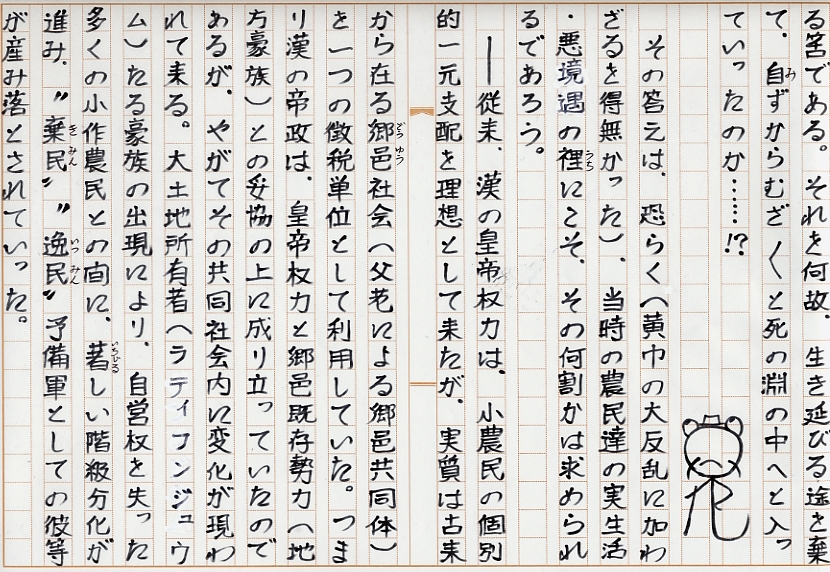 る筈である。それを何故、生き延びる途を棄
て、自ずからむざ〱と死の淵の中へと入っ
ていったのか……!?
その答えは、恐らく（黄巾の大反乱に加わ
ざるを得無かった）、当時の農民達の実生活
・悪境遇の裡にこそ、その何割かは求められ
るであろう。
──従来、漢の皇帝権力は、小農民の個別
的一元支配を理想として来たが、実質は古来
から在る郷邑社会（父老による郷邑共同体）
を一つの徴税単位として利用していた。つま
り漢の帝政は、皇帝権力と郷邑既存勢力（地
方豪族）との妥協の上に成り立っていたので
あるが、やがてその共同社会内に変化が現わ
れて来る。大土地所有者（ラティフンジュウ
ム）たる豪族の出現により、自営権を失った
多くの小作農民との間に、著しい階級分化が
進み、〝棄民〟〝逸民〟予備軍としての彼等
が産み落とされていった。